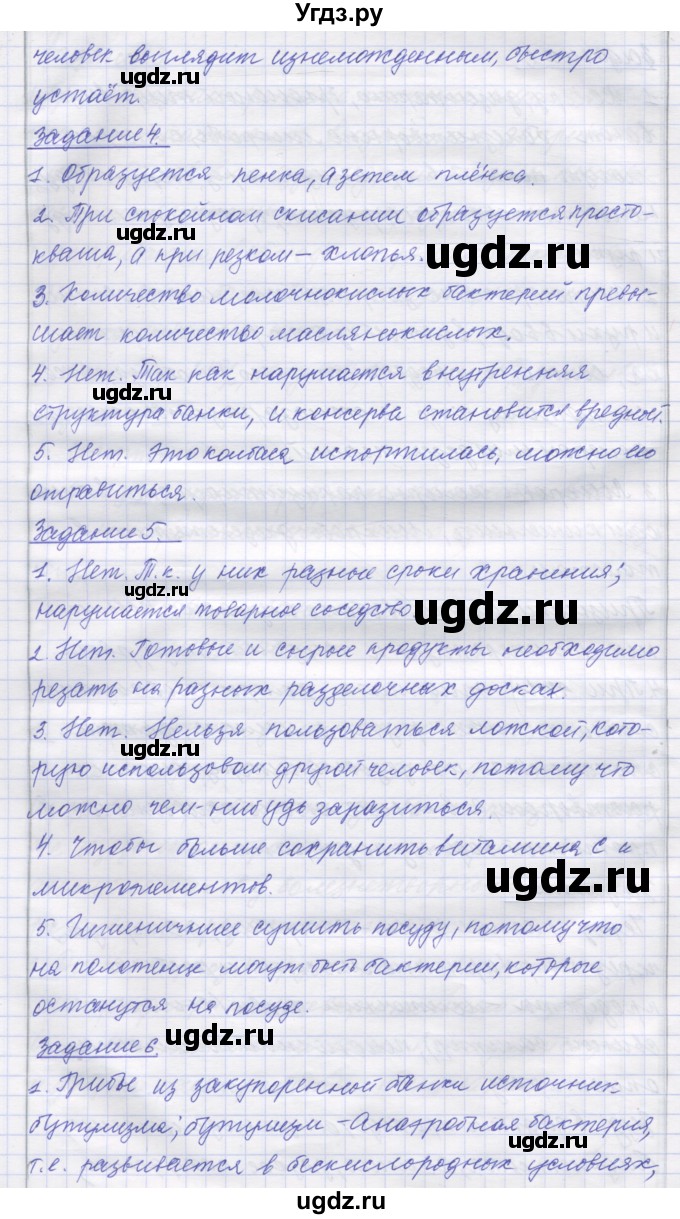 Угдз.ру
человек выглядит изнеможденным, быстро
устаёт.
Задание 4.
1. Образуется пенка, а зетем плёнка.
2. При спокойном скисании образуется просто-
кваша, а при резком – хлопья.
3. Количество молочнокислых бактерий превы-
шает количество маслянокислых.
4. Нет. Так как нарушается внутренняя
структура банки, и консерва становится вредной.
5. Нет. Это колбаса испортилась, можно ею
отравиться.
Задание 5.
1. Нет. Т.к. у них разные сроки хранения;
нарушается товарное соседство
2. Нет. Готовые и сырые продукты необходимо
резать на разных разделочных досках.
3. Нет. Нельзя пользоваться ложкой, кото-
рую использовал другой человек, потому что
можно чем-нибудь заразиться.
4. Чтобы больше сохранить витамина С и
микроэлементов.
5. Гигиеничнее сушить посуду, потому что
на полотенце могут быть бактерии, которые
останутся на посуде.
Задание 6.
1. Грибы из закупоренной банки источник
бутулизма; бутулизм – анаэробная бактерия,
т.е. развивается в бескислородных условиях,
ugdz.ru
ugdz.ru
ugdz.ru
ugdz.ru
ugdz.ru
ugdz.ru
ugdz.ru
ugdz.ru
ugdz.ru
ugdz.ru
ugdz.ru